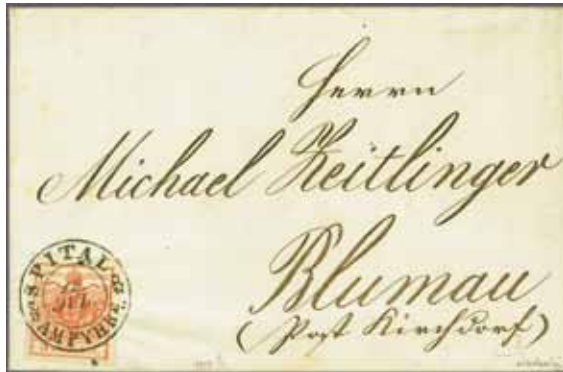 Herrn
Michael Zeitlinger
Blumau
(Post Kirchdorf)
SPITAL
JUL
AMPYHRN